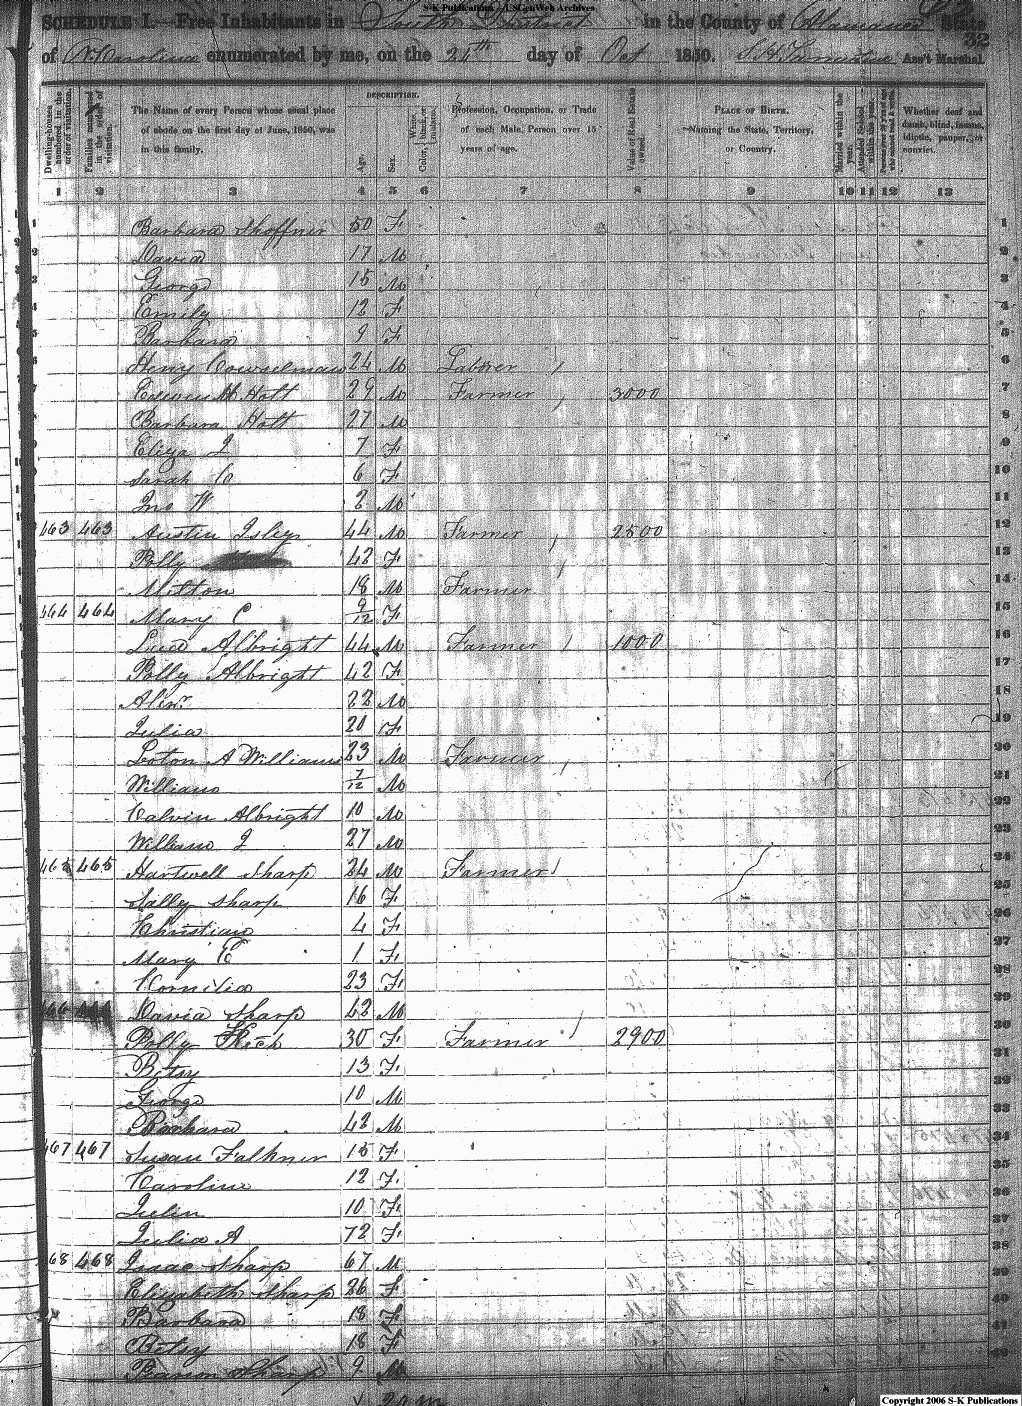 S-K Publications - USGenWeb Archives
SCHEDULE I.—Free Inhabitants in South District in the County of Alamance State
32
of N. Carolina enumerated by me, on the 24th day of Oct 1850. Ass't Marshal.
Dwelling-houses numbered in the order of visitation.
Families numbered in the order of visitation.
The Name of every Person whose usual place of abode on the first day of June, 1850, was in this family.
DESCRIPTION.
Age.
Sex.
Color, White, black, or mulatto.
Profession, Occupation, or Trade of each Male Person over 15 years of age.
Value of Real Estate owned.
PLACE OF BIRTH.
Naming the State, Territory, or Country.
Married within the year.
Attended School within the year.
Whether deaf and dumb, blind, insane, idiotic, pauper, or convict.
1 2 3 4 5 6 7 8 9 10 11 12 13
1 Barbara Shoffner 50 F 1
2 David 17 M 2
3 George 15 M 3
4 Emily 12 F 4
5 Barbara 9 F 5
6 Henry 24 M Laborer 6
7 Edwin M Holt 29 M Farmer 3000 7
8 Barbara Holt 27 M 8
9 Eliza J 7 F 9
10 Sarah C 6 F 10
11 Jno W 2 M 11
463 463 Austin Isley 44 M Farmer 2500 12
Polly 42 F 13
Milton 18 M Farmer 14
464 464 Mary C 9/12 F 15
Albright 44 M Farmer 1000 16
Polly Albright 42 F 17
22 M 18
Julia 20 F 19
A Williams 23 M Farmer 20
William 7/12 M 21
Calvin Albright 10 M 22
William J 27 M 23
465 465 Hartwell Sharp 24 M Farmer 24
Sally Sharp 16 F 25
Christian 4 F 26
Mary E 1 F 27
Cornilia 23 F 28
David Sharp 42 M 29
Polly Rich 30 F Farmer 2900 30
Betsy 13 F 31
George 10 M 32
42 M 33
467 467 Susan Falkner 15 F 34
Caroline 12 F 35
10 F 36
Julia A 72 F 37
68 468 Isaac Sharp 67 M 38
Elizabeth Sharp 26 F 39
Barbara 18 F 40
Betsy 18 F 41
Sharp 9 M 42
20 m
Copyright 2006 S-K Publications